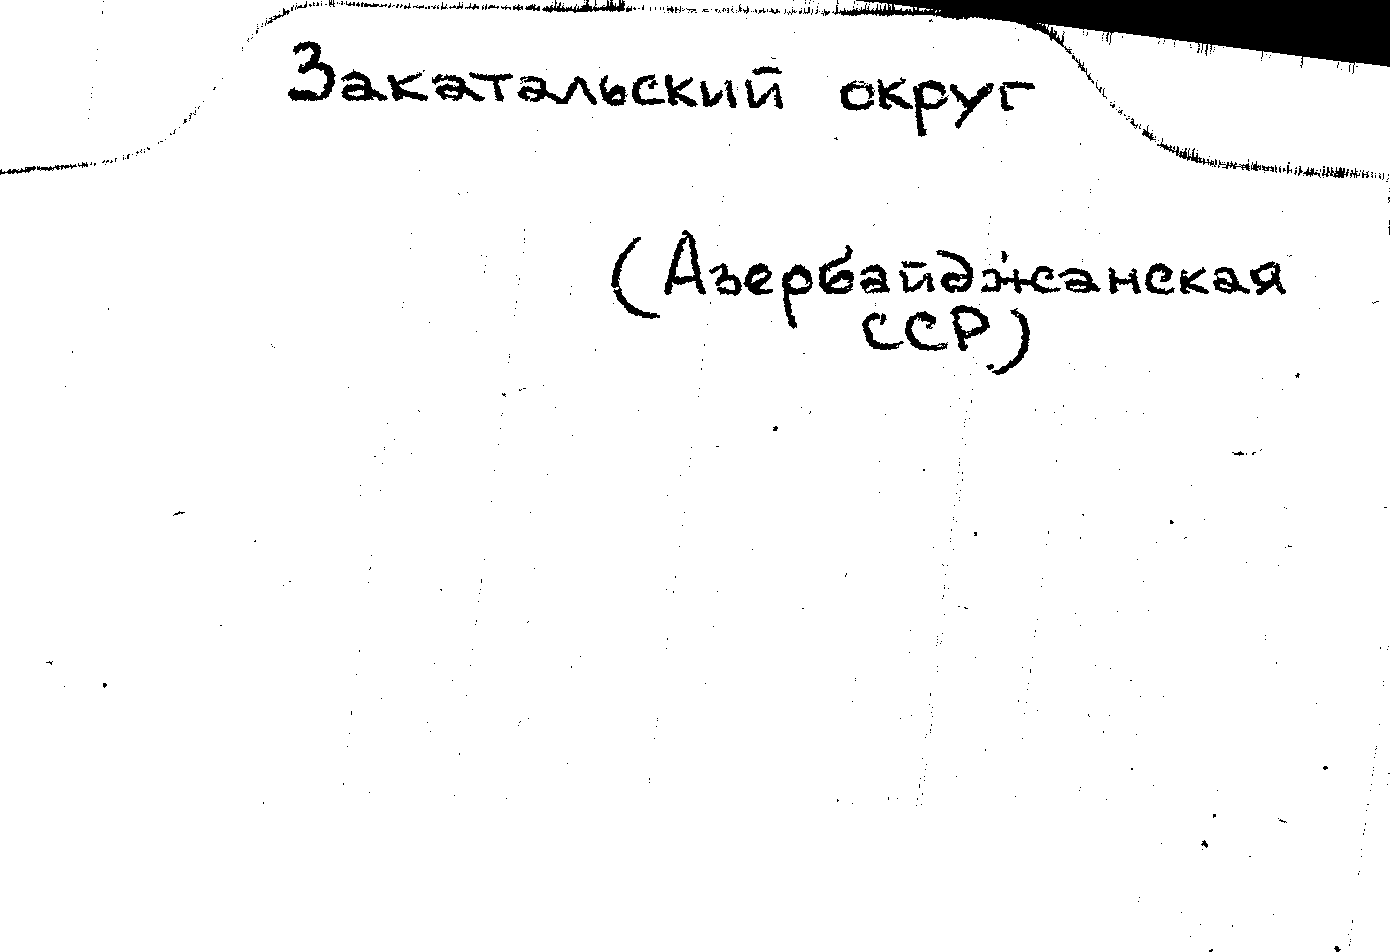 Закатальский округ
(Азербайджанская
ССР)